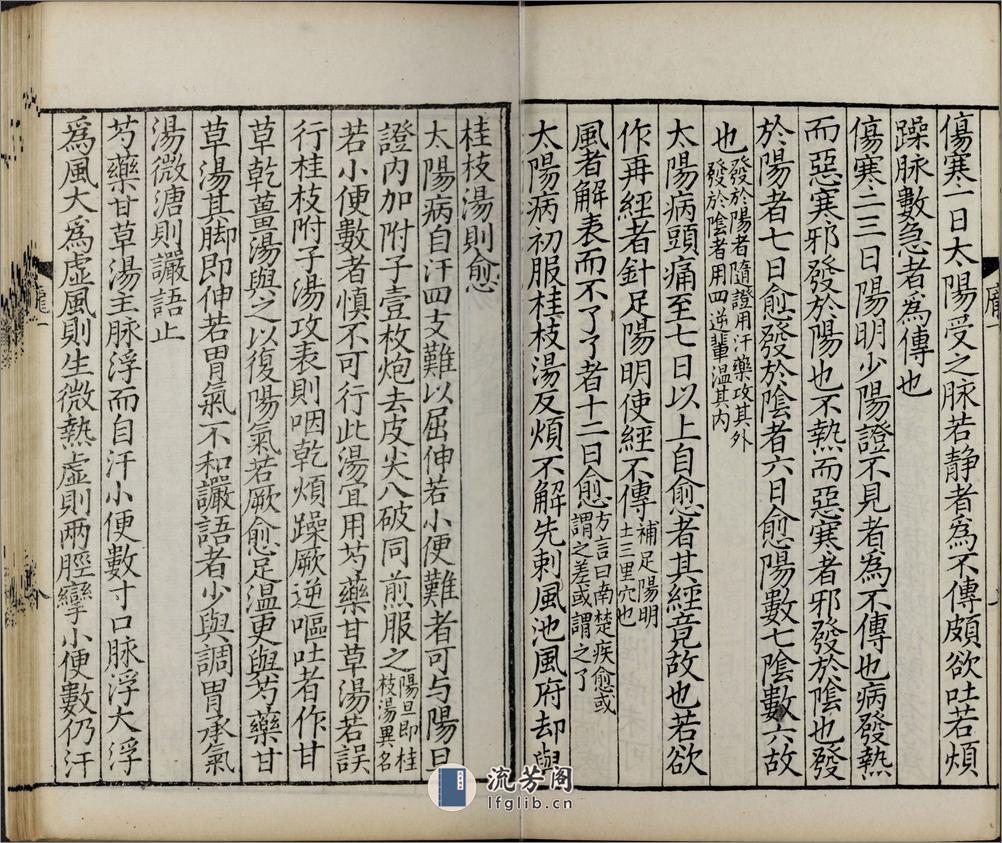 傷寒一日太陽受之脉若靜者為不傳頗欲吐若煩
躁脉數急者為傳也
傷寒二三日陽明少陽證不見者為不傳也病發熱
而惡寒邪發於陽也不熱而惡寒者邪發於陰也發
於陽者七日愈發於陰者六日愈陽數七陰數六故
也發於陽者隨證用汗藥攻其外
發於陰者用四逆輩溫其內
太陽病頭痛至七日以上自愈者其經竟故也若欲
作再經者針足陽明使經不傳補足陽明
土三里穴也
風者解表而不了了者十二日愈方言曰南楚疾愈或
謂之差或謂之了
太陽病初服桂枝湯反煩不解先刺風池風府却與
桂枝湯則愈
太陽病自汗四支難以屈伸若小便難者可与陽旦
證內加附子壹枚炮去皮尖八破同煎服之陽旦即桂
枝湯異名
若小便數者慎不可行此湯宜用芍藥甘草湯若誤
行桂枝附子湯攻表則咽乾煩躁厥逆嘔吐者作甘
草乾薑湯與之以復陽氣若厥愈足溫更與芍藥甘
草湯其脚即伸若胃氣不和讝語者少與調胃承氣
湯微溏則讝語止
芍藥甘草湯主脉浮而自汗小便數寸口脉浮大浮
為風大為虛風則生微熱虛則兩脛攣小便數仍汗
流芳阁
lfglib.cn